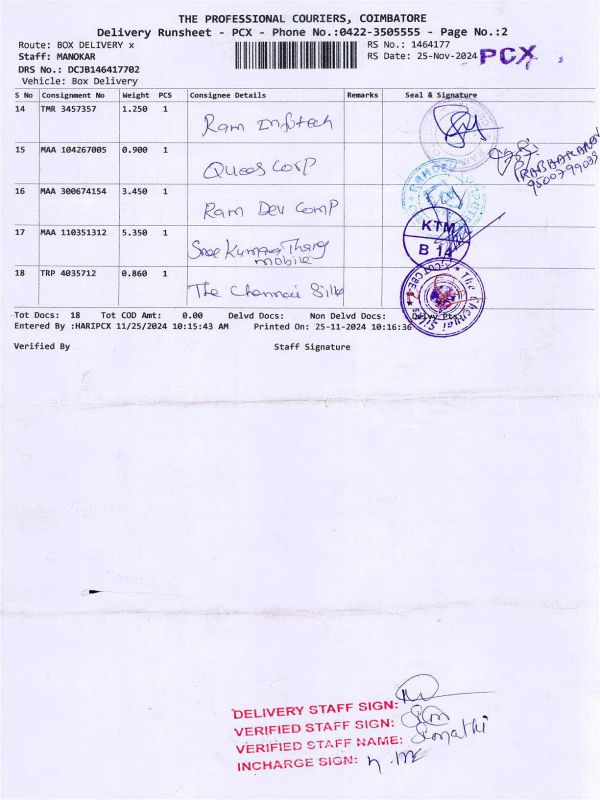 THE PROFESSIONAL COURIERS, COIMBATORE
Delivery Runsheet - PCX - Phone No.:0422-3505555 - Page No.:2
Route: BOX DELIVERY x RS No.: 1464177
Staff: MANOKAR RS Date: 25-Nov-2024 PCX
DRS No.: DCJB146417702
Vehicle: Box Delivery
S No Consignment No Weight PCS Consignee Details Remarks Seal & Signature
14 TMR 3457357 1.250 1 Ram Infotech
15 MAA 104267005 0.900 1 Quess Corp
PRABHAKARAN
9500799033
16 MAA 300674154 3.450 1 Ram Dev Comp
17 MAA 110351312 5.350 1 Sree Kumaran Thang
mobile
KTM
B 14
18 TRP 4035712 0.860 1 The Chennai Silks
The Chennai Silks
Tot Docs: 18 Tot COD Amt: 0.00 Delvd Docs: Non Delvd Docs: Delvy Pts:
Entered By :HARIPCX 11/25/2024 10:15:43 AM Printed On: 25-11-2024 10:16:36
Verified By Staff Signature
DELIVERY STAFF SIGN:
VERIFIED STAFF SIGN:
VERIFIED STAFF NAME: Sumathi
INCHARGE SIGN: